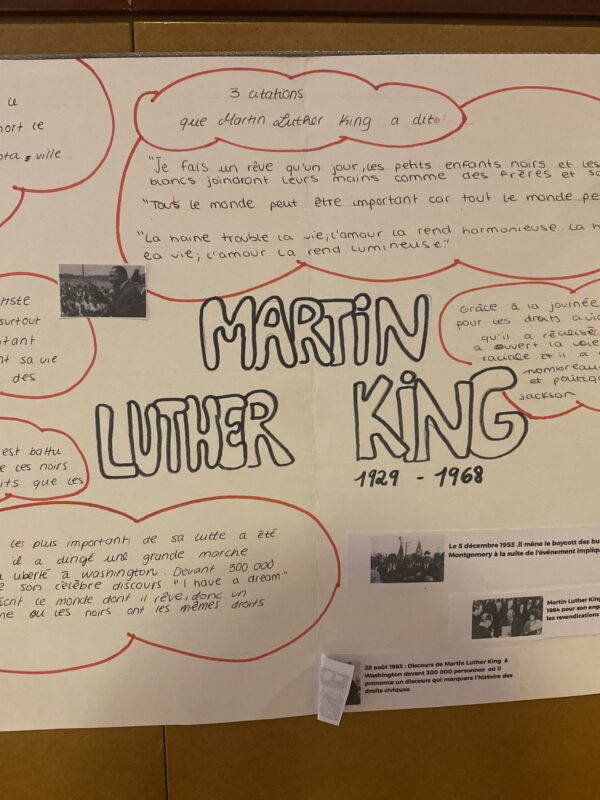 3 citations
que Martin Luther King a dit :
"Je fais un rêve qu'un jour, les petits enfants noirs et les
blancs joindront leurs mains comme des frères et
"Tous le monde peut être important car tout le monde
"La haine trouble la vie, l'amour la rend harmonieuse. La
la vie; l'amour la rend lumineuse."
ville
surtout
sa vie
des
Grâce à la journée
pour les droits
qu'il a réalisé
a ouvert la voie
raciale. et il a
et
Jackson
MARTIN
LUTHER KING
1929 - 1968
est battu
les noirs
que les
les plus important de sa lutte a été
il a dirigé une grande marche
à Washington. Devant 300 000
son célèbre discours "I have a dream"
le monde dont il rêve, donc un
ou les noirs ont les mêmes droits
Le 5 décembre 1955 ,il mène le boycott des
Montgomery à la suite de l'événement
Martin Luther King
1964 pour son
les revendications
28 août 1963 : Discours de Martin Luther King à
Washington devant 300 000 personnes où il
prononce un discours qui marquera l'histoire des
droits civiques.